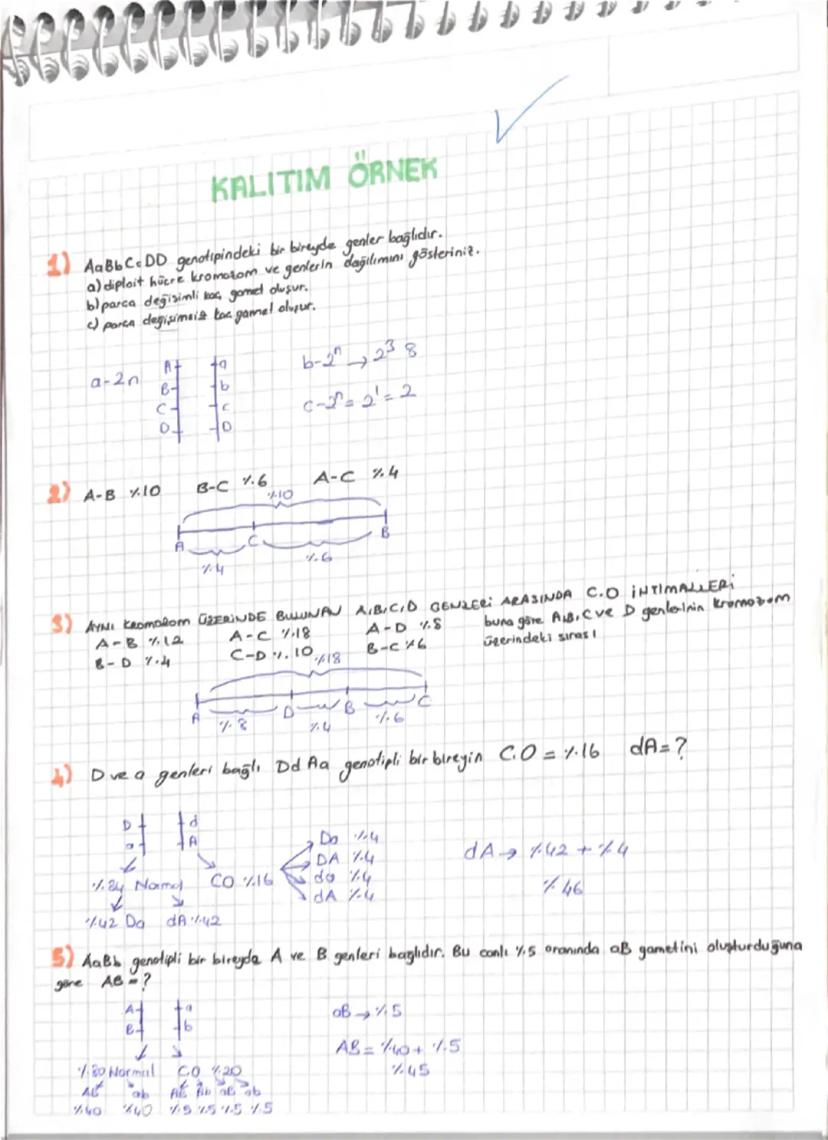 KALITIM ÖRNEK
1) AaBbCcDD genotipindeki bir bireyde genler bağlıdır.
a) diploit hücre kromozom ve genlerin dağılımını gösteriniz.
b) parça değişimli kaç gamet oluşur.
c) parça değişimsiz kaç gamet oluşur.
a-2n
A a
B b
C c
D D
b-2ⁿ → 2³ 8
c-2ⁿ = 2¹ = 2
2) A-B %10 B-C %6 A-C %4
%10
A C B
%4 %6
3) AYNI KROMOZOM ÜZERİNDE BULUNAN A,B,C,D GENLERİ ARASINDA C.O İHTİMALLERİ
A-B %12 A-C %18 A-D %8 buna göre A,B,C ve D genlerinin kromozom
B-D %4 C-D %10 B-C %6 üzerindeki sırası
%18
A D B C
%8 %4 %6
4) D ve a genleri bağlı DdAa genotipli bir bireyin C.O = %16 dA = ?
D d
a A
%84 Normal CO %16
%42 Da dA %42
Da %4
DA %4
da %4
dA %4
dA → %42 + %4
%46
5) AaBb genotipli bir bireyde A ve B genleri bağlıdır. Bu canlı %5 oranında aB gametini oluşturduğuna
göre AB = ?
A a
B b
%80 Normal CO %20
AB ab AB Ab aB ab
%40 %40 %5 %5 %5 %5
aB → %5
AB = %40 + %5
%45